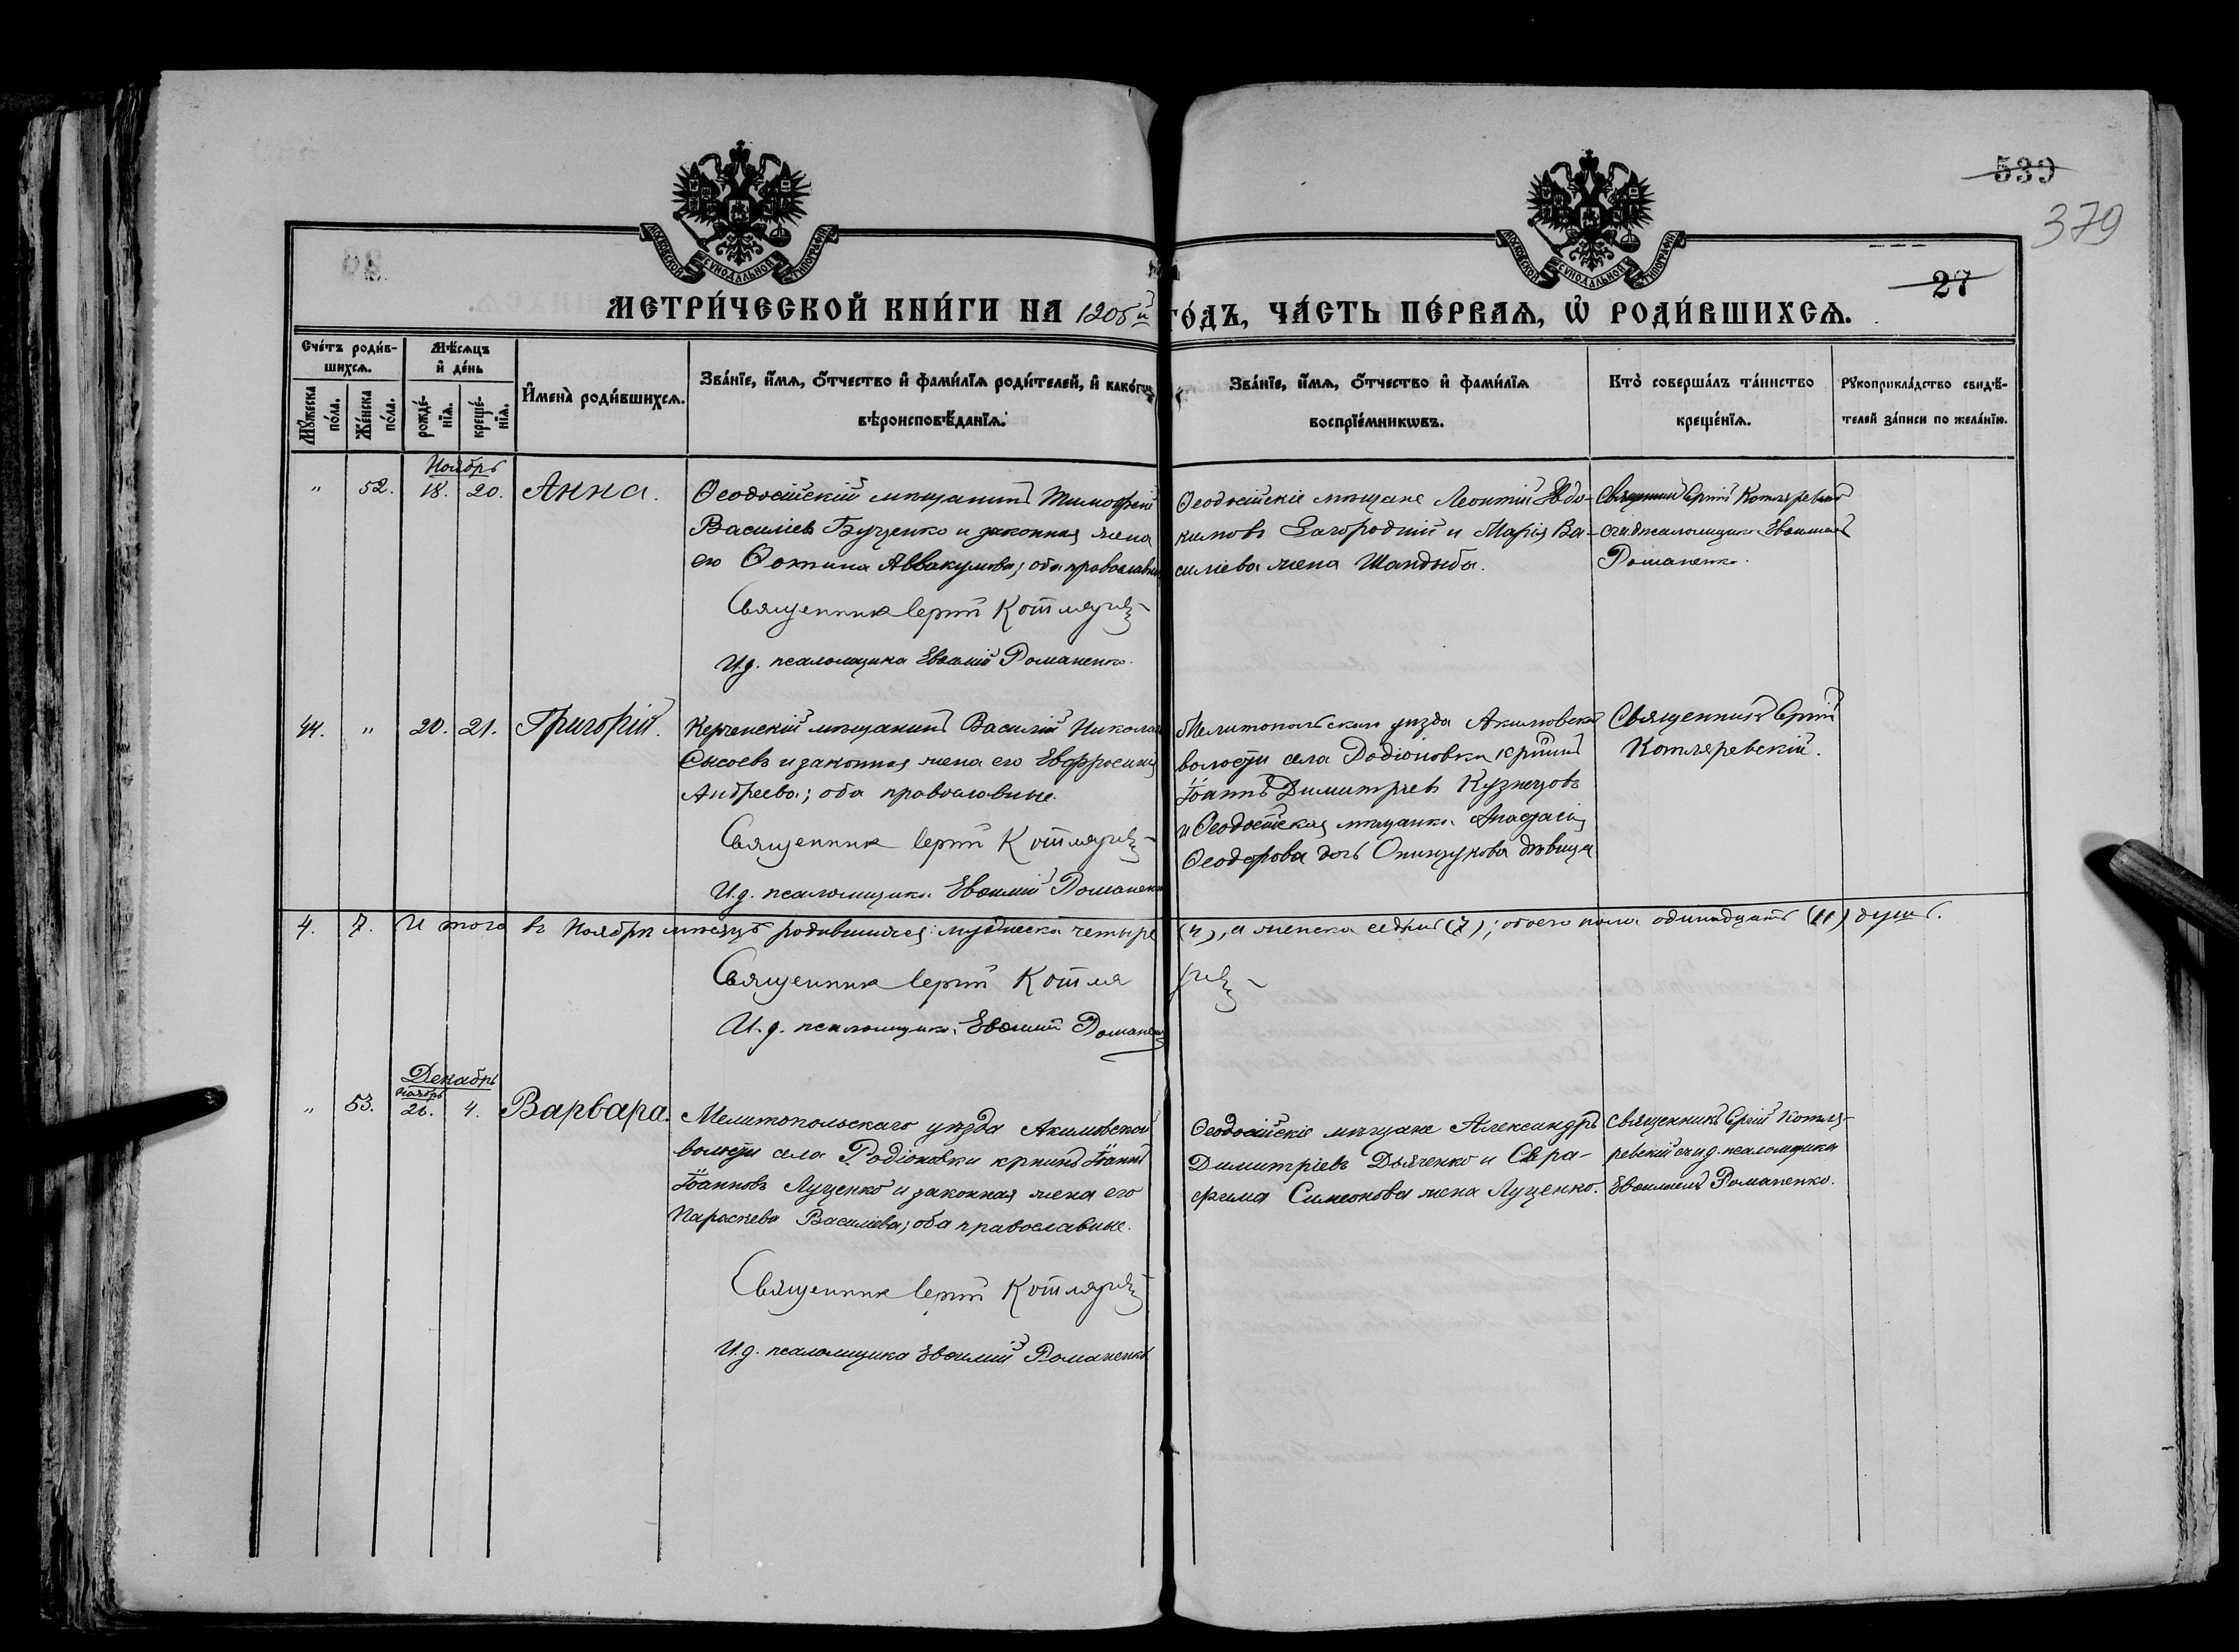 539
379
27
МОСКОВСКОЙ СѴНОДАЛЬНОЙ ТИПОГРАФІИ
МОСКОВСКОЙ СѴНОДАЛЬНОЙ ТИПОГРАФІИ
МЕТРИ́ЧЕСКОЙ КНИ́ГИ НА 1905й ГО́ДЪ, ЧА́СТЬ ПЕ́РВАѦ, Ѽ РОДИ́ВШИХСѦ.
Сче́тъ роди́в-
шихсѧ.
Мѣ́сѧцъ
и҆ де́нь
Мꙋ́жеска
по́ла.
Же́нска
по́ла.
рожде́-
нїѧ.
креще́-
нїѧ.
И҆мена̀ роди́вшихсѧ.
Зва́нїе, и҆́мѧ, ѻ҆́тчество и҆ фами́лїѧ роди́телей, и҆ како́гѡ
вѣроисповѣ́данїѧ.
Зва́нїе, и҆́мѧ, ѻ҆́тчество и҆ фами́лїѧ
воспрїе́мникѡвъ.
Кто̀ соверша́лъ та́инство
креще́нїѧ.
Рꙋкоприкла́дство свидѣ́-
телей за́писи по жела́нїю.
Ноябрь
" 52. 18. 20. Анна.
Ѳеодосійскій мѣщанинъ Тимоѳей
Василіевъ Буценко и законная жена
его Фотина Аввакумова; оба православные
Священникъ Сергій Котляревскій
И.д. псаломщика Евѳимій Романенко.
Ѳеодосійскіе мѣщане Леонтій Евдо-
кимовъ Загородній и Марія Ва-
силіева жена Шандыба.
Священникъ Сергій Котляревскій
съ и.д. псаломщика Евѳиміемъ
Романенко.
44. " 20. 21. Григорій.
Керченскій мѣщанинъ Василій Николаевъ
Сысоевъ и законная жена его Евфросинія
Андреева; оба православные.
Священникъ Сергій Котляревскій
И.д. псаломщика Евѳимій Романенко
Мелитопольскаго уѣзда Акимовской
волости села Родіоновки кр-нинъ
Іоаннъ Димитріевъ Кузнецовъ
и Ѳеодосійская мѣщанка Анастасія
Ѳеодорова дочь дѣвица
Священникъ Сергій
Котляревскій.
4. 7. Итого въ Ноябрѣ мѣсяцѣ родившихся: мужеска четыре (4), а женска седмь (7); обоего пола одинадцать (11) душъ.
Священникъ Сергій Котляревскій
И.д. псаломщика Евѳимій Романенко
Декабрь
Ноябрь
" 53. 26. 4. Варвара.
Мелитопольскаго уѣзда Акимовской
волости села Родіоновки кр-нинъ Іоаннъ
Іоанновъ Луценко и законная жена его
Параскева Василіева; оба православные.
Священникъ Сергій Котляревскій
И.д. псаломщика Евѳимій Романенко
Ѳеодосійскіе мѣщане Александръ
Димитріевъ Дьяченко и Сера-
фима Симеонова жена Луценко.
Священникъ Сергій Котля-
ревскій съ и.д. псаломщика
Евѳиміемъ Романенко.